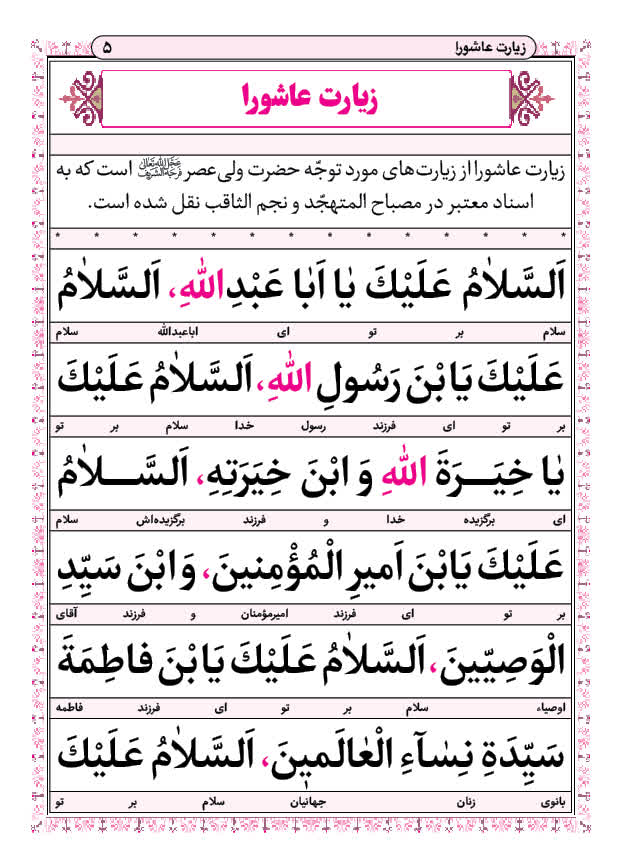 زیارت عاشورا ۵
زیارت عاشورا
زیارت عاشورا از زیارت‌های مورد توجّه حضرت ولی‌عصر عَجَّلَ اللهُ تَعَالی فَرَجَهُ الشَّریف است که به
اسناد معتبر در مصباح المتهجّد و نجم الثاقب نقل شده است.
* * * * * * * * * * * * * *
اَلسَّلاٰمُ عَلَیْكَ یٰا اَبٰا عَبْدِاللهِ، اَلسَّلاٰمُ
سلام بر تو ای اباعبدالله سلام
عَلَیْكَ یَابْنَ رَسُولِ اللهِ، اَلسَّلاٰمُ عَلَیْكَ
بر تو ای فرزند رسول خدا سلام بر تو
یٰا خِیَـــرَةَ اللهِ وَ ابْنَ خِیَرَتِهِ، اَلسَّـــلاٰمُ
ای برگزیده خدا و فرزند برگزیده‌اش سلام
عَلَیْكَ یَابْنَ اَمیرِ الْمُؤْمِنینَ، وَ ابْنَ سَیِّدِ
بر تو ای فرزند امیرمؤمنان و فرزند آقای
الْوَصِیّینَ، اَلسَّلاٰمُ عَلَیْكَ یَابْنَ فاطِمَةَ
اوصیاء سلام بر تو ای فرزند فاطمه
سَیِّدَةِ نِسٰآءِ الْعٰالَمینَ، اَلسَّلاٰمُ عَلَیْكَ
بانوی زنان جهانیان سلام بر تو